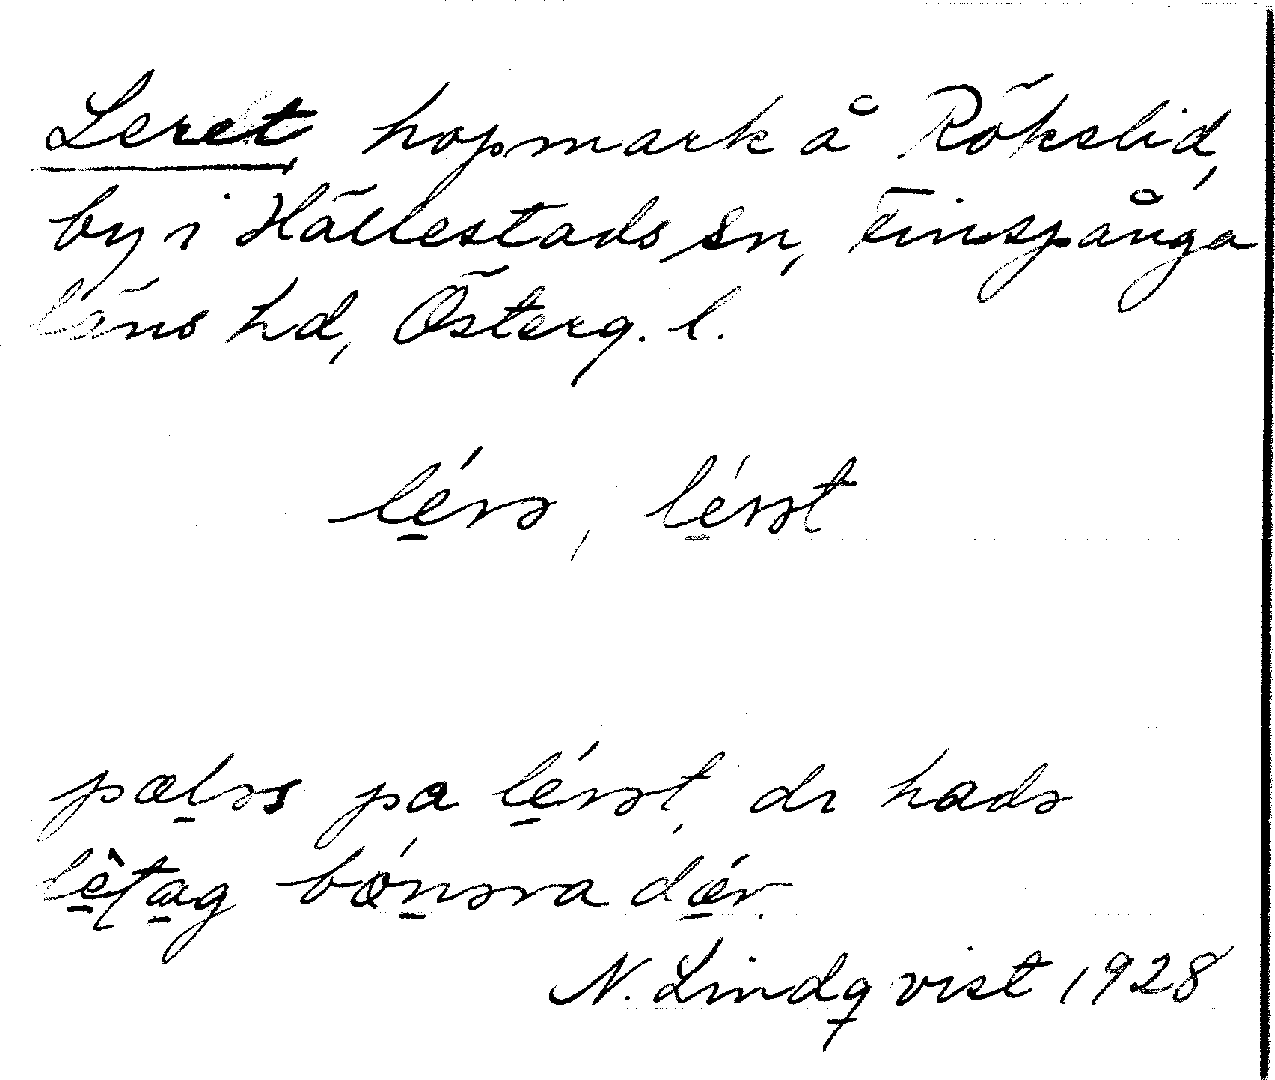 Leret, hopmark å Rökslid,
by i Hällestads sn, Finspånga
läns hd, Österg. l.
lérə, lérət
pæləs pa lérət, dɩ hadə
lètag bǿnəra dǽr.
N. Lindqvist 1928